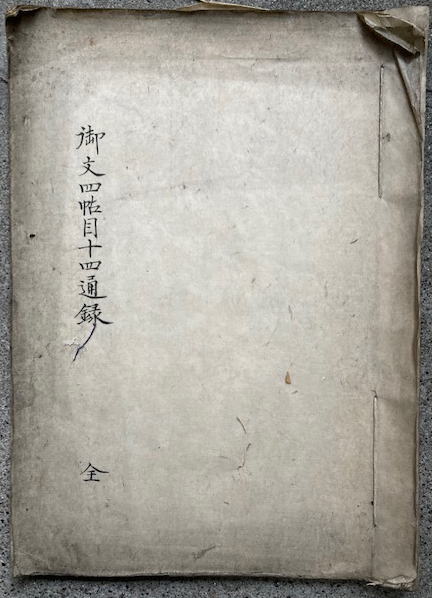 御文四帖目十四通録
全